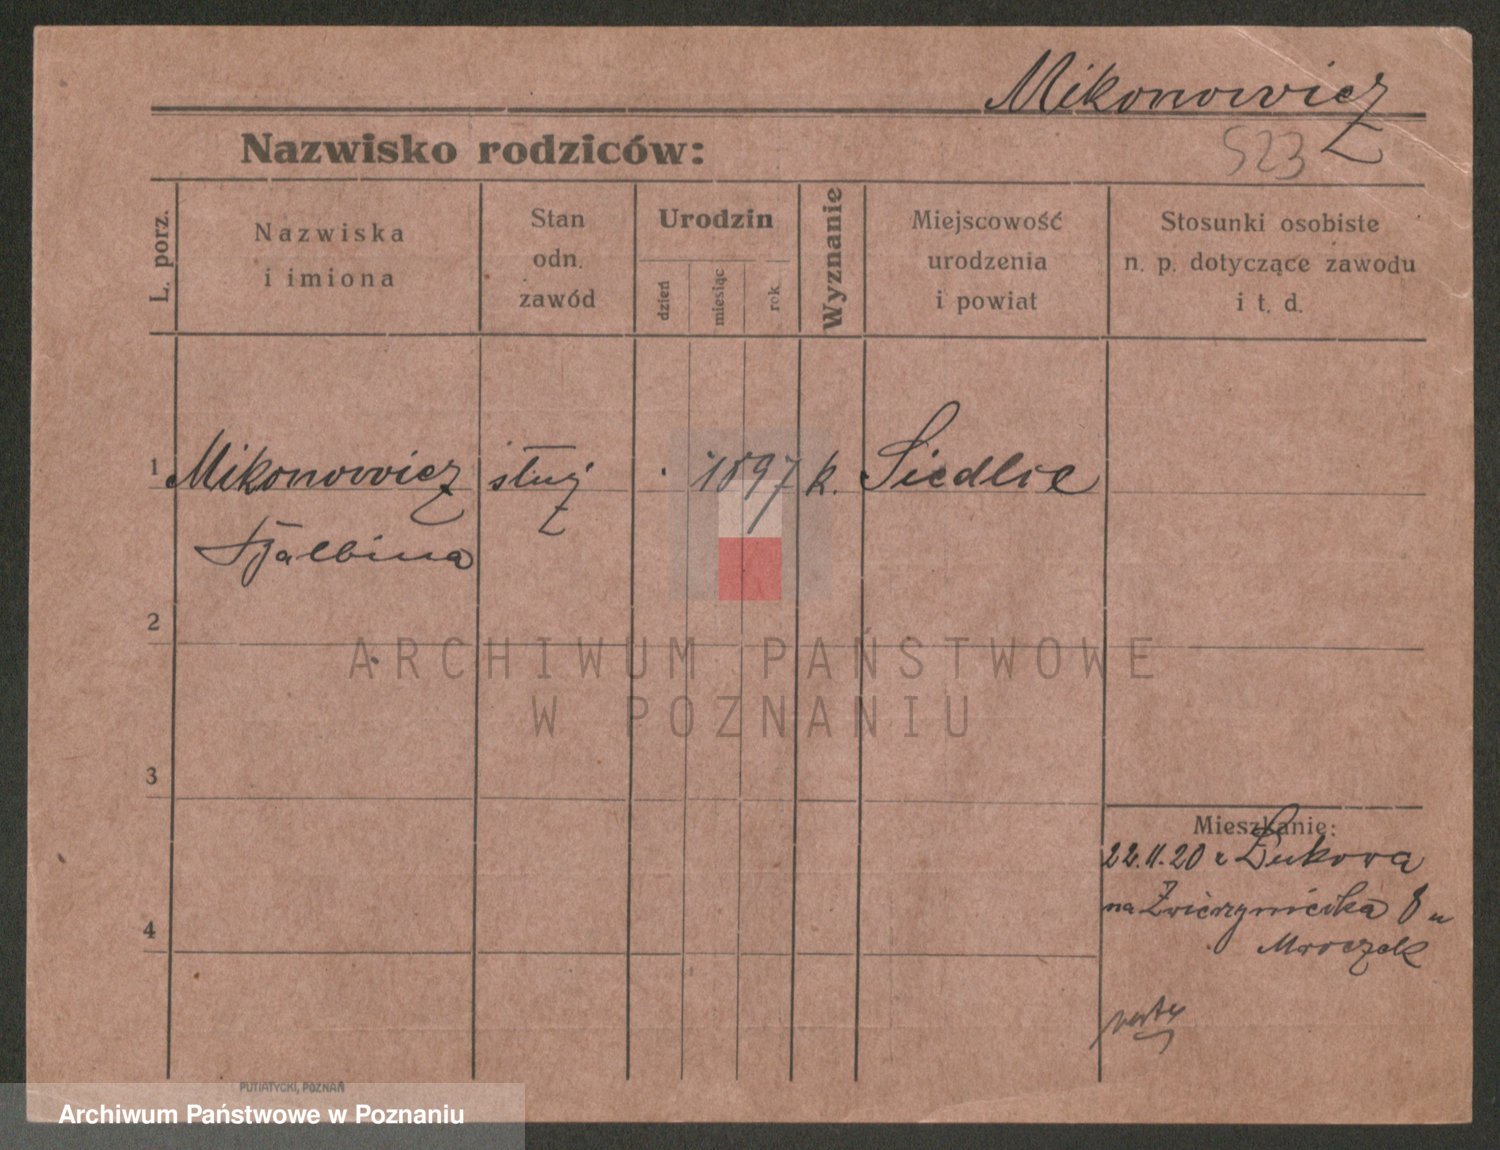 Mikonowicz
523
Nazwisko rodziców:
L. porz.
Nazwiska
i imiona
Stan
odn.
zawód
Urodzin
dzień
miesiąc
rok.
Wyznanie
Miejscowość
urodzenia
i powiat
Stosunki osobiste
n. p. dotyczące zawodu
i t. d.
1 Mikonowicz służ 1897 k. Siedlce
Balbina
2
ARCHIWUM PAŃSTWOWE
W POZNANIU
3
Mieszkanie:
22.11.20 z Łukowa
na Zwierzyniecka 8 u
4
Mroczek
PUTIATYCKI, POZNAŃ
Archiwum Państwowe w Poznaniu